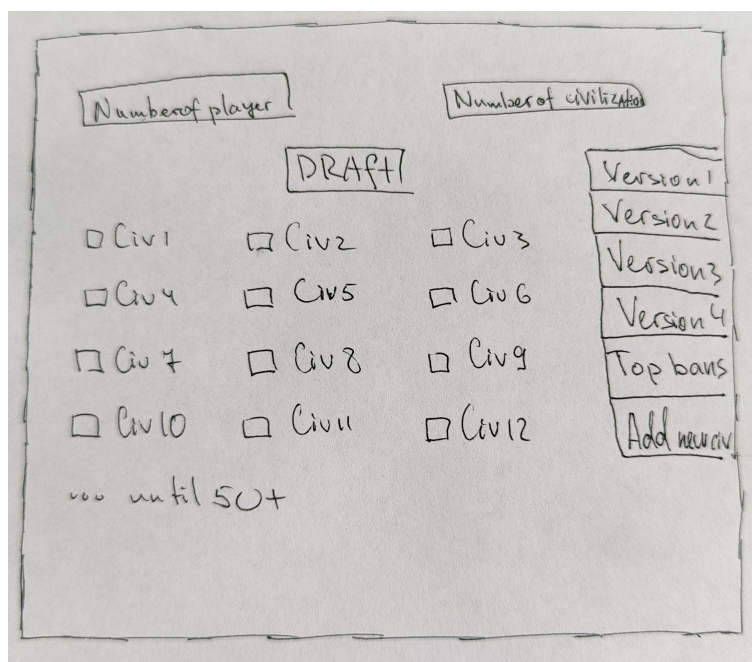 Number of player
Number of civilization
DRAft
Version 1
Version 2
Version 3
Version 4
Top bans
Add new civ
Civ 1 Civ 2 Civ 3
Civ 4 Civ 5 Civ 6
Civ 7 Civ 8 Civ 9
Civ 10 Civ 11 Civ 12
... until 50+